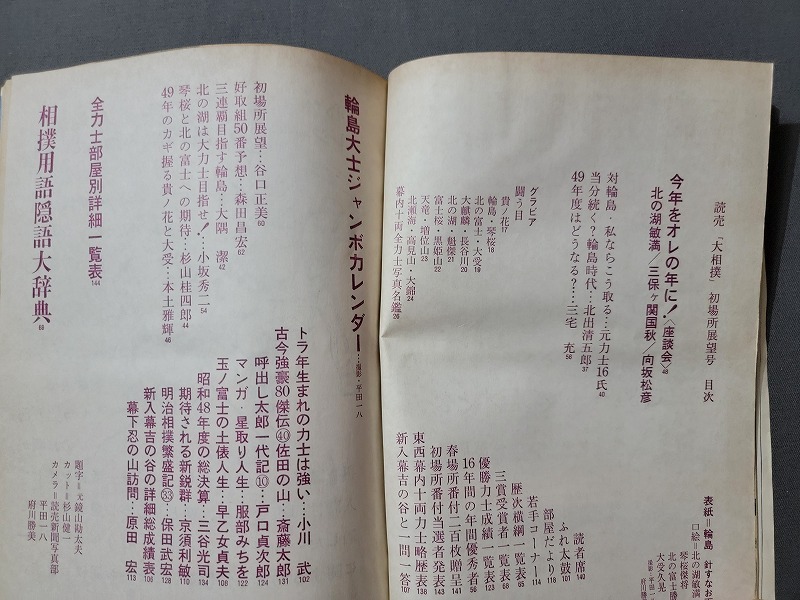 読売「大相撲」初場所展望号 目次
今年をオレの年に！〈座談会〉48
北の湖敏満／三保ヶ関国秋／向坂松彦
対輪島・私ならこう取る…元力士16氏40
当分続く？輪島時代…北出清五郎37
49年度はどうなる？…三宅 充56
グラビア
闘う目
貴ノ花17
輪島・琴桜18
北の富士・大受19
大麒麟・長谷川20
北の湖・魁傑21
富士桜・黒姫山22
天竜・増位山23
北瀬海・高見山・大錦24
幕内十両全力士写真名鑑26
表紙＝輪島
口絵＝北の湖敏満
琴桜傑将
北の富士勝
大受久晃
読者席140
ふれ太鼓101
部屋だより118
若手コーナー114
歴次横綱一覧表65
三賞受賞者一覧表68
優勝力士成績一覧表123
16年間の年間優秀者50
春場所番付二百枚贈呈141
初場所番付当選者発表143
東西幕内十両力士略歴表138
新入幕吉の谷と一問一答107
輪島大士ジャンボカレンダー…撮影・平田一八
初場所展望…谷口正美60
好取組50番予想…森田昌宏62
三連覇目指す輪島…大隅 潔42
北の湖は大力士目指せ！…小坂秀二54
琴桜と北の富士への期待…杉山桂四郎44
49年のカギ握る貴ノ花と大受…本土雅輝46
全力士部屋別詳細一覧表144
相撲用語隠語大辞典69
トラ年生まれの力士は強い…小川 武102
古今強豪80傑伝㊵佐田の山…斎藤太郎131
呼出し太郎一代記⑩…戸口貞次郎124
マンガ・星取り人生…服部みちを122
玉ノ富士の土俵人生…早乙女貞夫108
昭和48年度の総決算…三谷光司134
期待される新鋭群…京須利敏110
明治相撲繁盛記㉝…保田武宏128
新入幕吉の谷の詳細総成績表106
幕下忍の山訪問…原田 宏113
題字＝元鏡山勘太夫
カット＝杉山健一
平田一八
カメラ＝読売新聞写真部
府川勝美